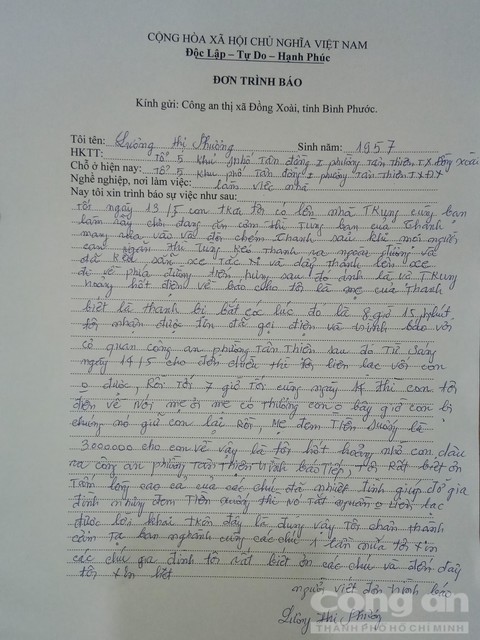 CỘNG HÒA XÃ HỘI CHỦ NGHĨA VIỆT NAM
Độc Lập – Tự Do – Hạnh Phúc
ĐƠN TRÌNH BÁO
Kính gửi: Công an thị xã Đồng Xoài, tỉnh Bình Phước.
Tôi tên: Lương Thị Phường Sinh năm: 1957
HKTT: Tổ 5 khu phố Tân đồng I phường Tân Thiện TX đồng xoài
Chỗ ở hiện nay: Tổ 5 khu phố Tân đồng I phường Tân Thiện TX ĐX
Nghề nghiệp, nơi làm việc: làm việc nhà
Nay tôi xin trình báo sự việc như sau:
Tối ngày 13/5 con trai tôi có lên nhà Trung cùng bạn
làm rẫy chơi đang ăn cơm thì Tùng bạn của Thành
mang dao vào với đòi chém Thanh sau khi mọi người
can ngăn thì Tùng kéo thanh ra ngoài đường và
đã kêu sẵn xe Tắc xi và đẩy thành lên xe
đi về phía đường tiến hưng sau đó anh là vũ Trung
hoảng hốt điện về báo cho tôi là mẹ của Thanh
biết là thanh bị bắt cóc lúc đó là 8 giờ 15 phút
tôi nhận được tin đã gọi điện và trình báo với
cơ quan công an phường Tân Thiện sau đó Từ sáng
ngày 14/5 cho đến chiều thì tôi liên lạc với con
o được, Rồi tới 7 giờ tối cùng ngày 14 thì con tôi
điện về nói mẹ ơi mẹ có thương con o bây giờ con bị
chúng nó giữ con lại rồi, mẹ đem Tiền xuống là
3000000 cho con về vậy là tôi hốt hoảng nhờ con dâu
ra công an phường Tân Thiện trình báo tiếp, Tôi Rất biết ơn
Tấm lòng cao cả của các chú đã nhiệt tình giúp đỡ gia
đình nhưng đem Tiền xuống thì nó Tắt nguồn o liên lạc
được lời khai trên đây là đúng vậy Tôi chân thành
cảm Tạ ban nghành cùng các chú 1 lần nữa tôi xin
các chú gia đình tôi rất biết ơn các chú và đơn đây
tôi xin hết
người viết đơn trình báo
Lương Thị Phường
Công an
THÀNH PHỐ HỒ CHÍ MINH